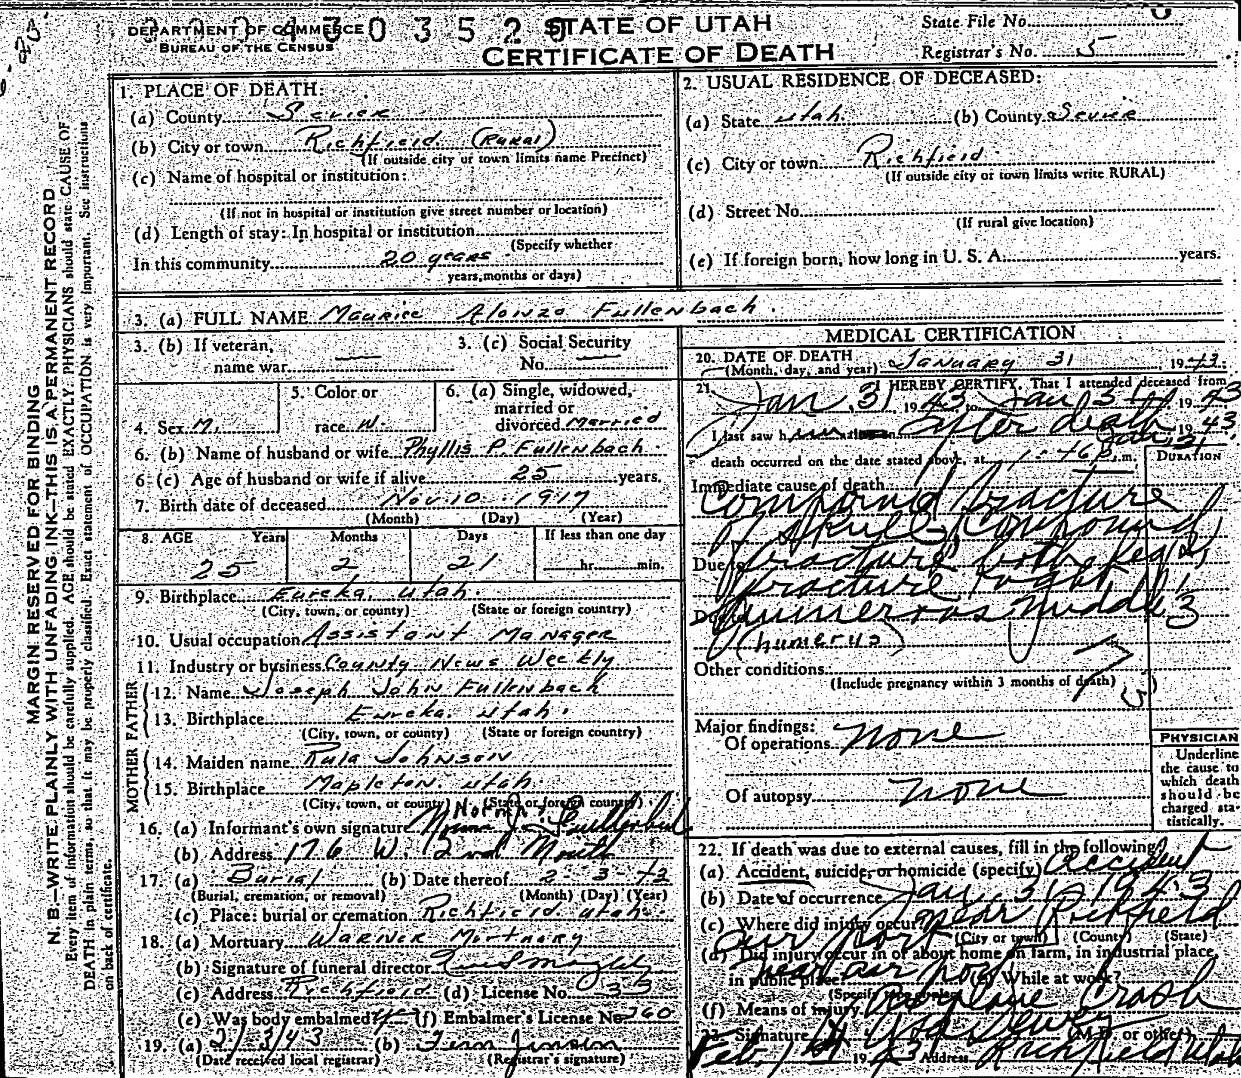 DEPARTMENT OF COMMERCE
BUREAU OF THE CENSUS
STATE OF UTAH
CERTIFICATE OF DEATH
State File No.
Registrar's No. 5
MARGIN RESERVED FOR BINDING
N. B.—WRITE PLAINLY WITH UNFADING INK—THIS IS A PERMANENT RECORD
Every item of information should be carefully supplied. AGE should be stated EXACTLY. PHYSICIANS should state CAUSE OF
DEATH in plain terms, so that it may be properly classified. Exact statement of OCCUPATION is very important. See instructions
on back of certificate.
1. PLACE OF DEATH:
(a) County Sevier
(b) City or town Richfield (Rural)
(If outside city or town limits name Precinct)
(c) Name of hospital or institution:
(If not in hospital or institution give street number or location)
(d) Length of stay: In hospital or institution
(Specify whether
In this community 20 years
years, months or days)
2. USUAL RESIDENCE OF DECEASED:
(a) State Utah (b) County Sevier
(c) City or town: Richfield
(If outside city or town limits write RURAL)
(d) Street No.
(If rural give location)
(e) If foreign born, how long in U. S. A. years.
3. (a) FULL NAME Maurice Alonzo Fullenbach.
3. (b) If veteran, name war —
3. (c) Social Security No. —
4. Sex M.
5. Color or race W.
6. (a) Single, widowed, married or divorced Married
6. (b) Name of husband or wife Phyllis P. Fullenbach
6 (c) Age of husband or wife if alive 25 years.
7. Birth date of deceased Nov. 10 1917
(Month) (Day) (Year)
8. AGE Years Months Days If less than one day
25 2 21 hr. min.
9. Birthplace Eureka, Utah.
(City, town, or county) (State or foreign country)
10. Usual occupation Assistant Manager
11. Industry or business County News Weekly
FATHER
12. Name Joseph John Fullenbach
13. Birthplace Eureka, Utah.
(City, town, or county) (State or foreign country)
MOTHER
14. Maiden name Rula Johnson
15. Birthplace Mapleton, Utah
(City, town, or county) (State or foreign country)
16. (a) Informant's own signature
(b) Address 176 W. 2nd North
17. (a) Burial (b) Date thereof 2-3-43
(Burial, cremation, or removal) (Month) (Day) (Year)
(c) Place: burial or cremation Richfield, Utah.
18. (a) Mortuary Warner Mortuary
(b) Signature of funeral director
(c) Address Richfield (d) License No. 
(e) Was body embalmed? (f) Embalmer's License No. 260
19. (a) 2/3/43 (b)
(Date received local registrar) (Registrar's signature)
MEDICAL CERTIFICATION
20. DATE OF DEATH January 31, 1943.
(Month, day, and year)
21. I HEREBY CERTIFY, That I attended deceased from
Jan 31 1943, to Jan 31 1943
I last saw him after death Jan 31 1943
death occurred on the date stated above, at P.m.
DURATION
Immediate cause of death
Compound fracture
of skull, Compound
Due to fracture both legs,
fracture right
Due to humerous middle 1/3
(humerus)
Other conditions
(Include pregnancy within 3 months of death)
Major findings:
Of operations none
Of autopsy none
PHYSICIAN
Underline the cause to which death should be charged statistically.
22. If death was due to external causes, fill in the following:
(a) Accident, suicide, or homicide (specify) Accident
(b) Date of occurrence Jan. 31, 1943
(c) Where did injury occur? near Richfield
(City or town) (County) (State)
air port
(d) Did injury occur in or about home on farm, in industrial place,
in public place? near air port While at work?
(Specify type of place)
(f) Means of injury Airplane Crash
23. Signature (M.D. or other)
Feb. 1943 Address Richfield Utah